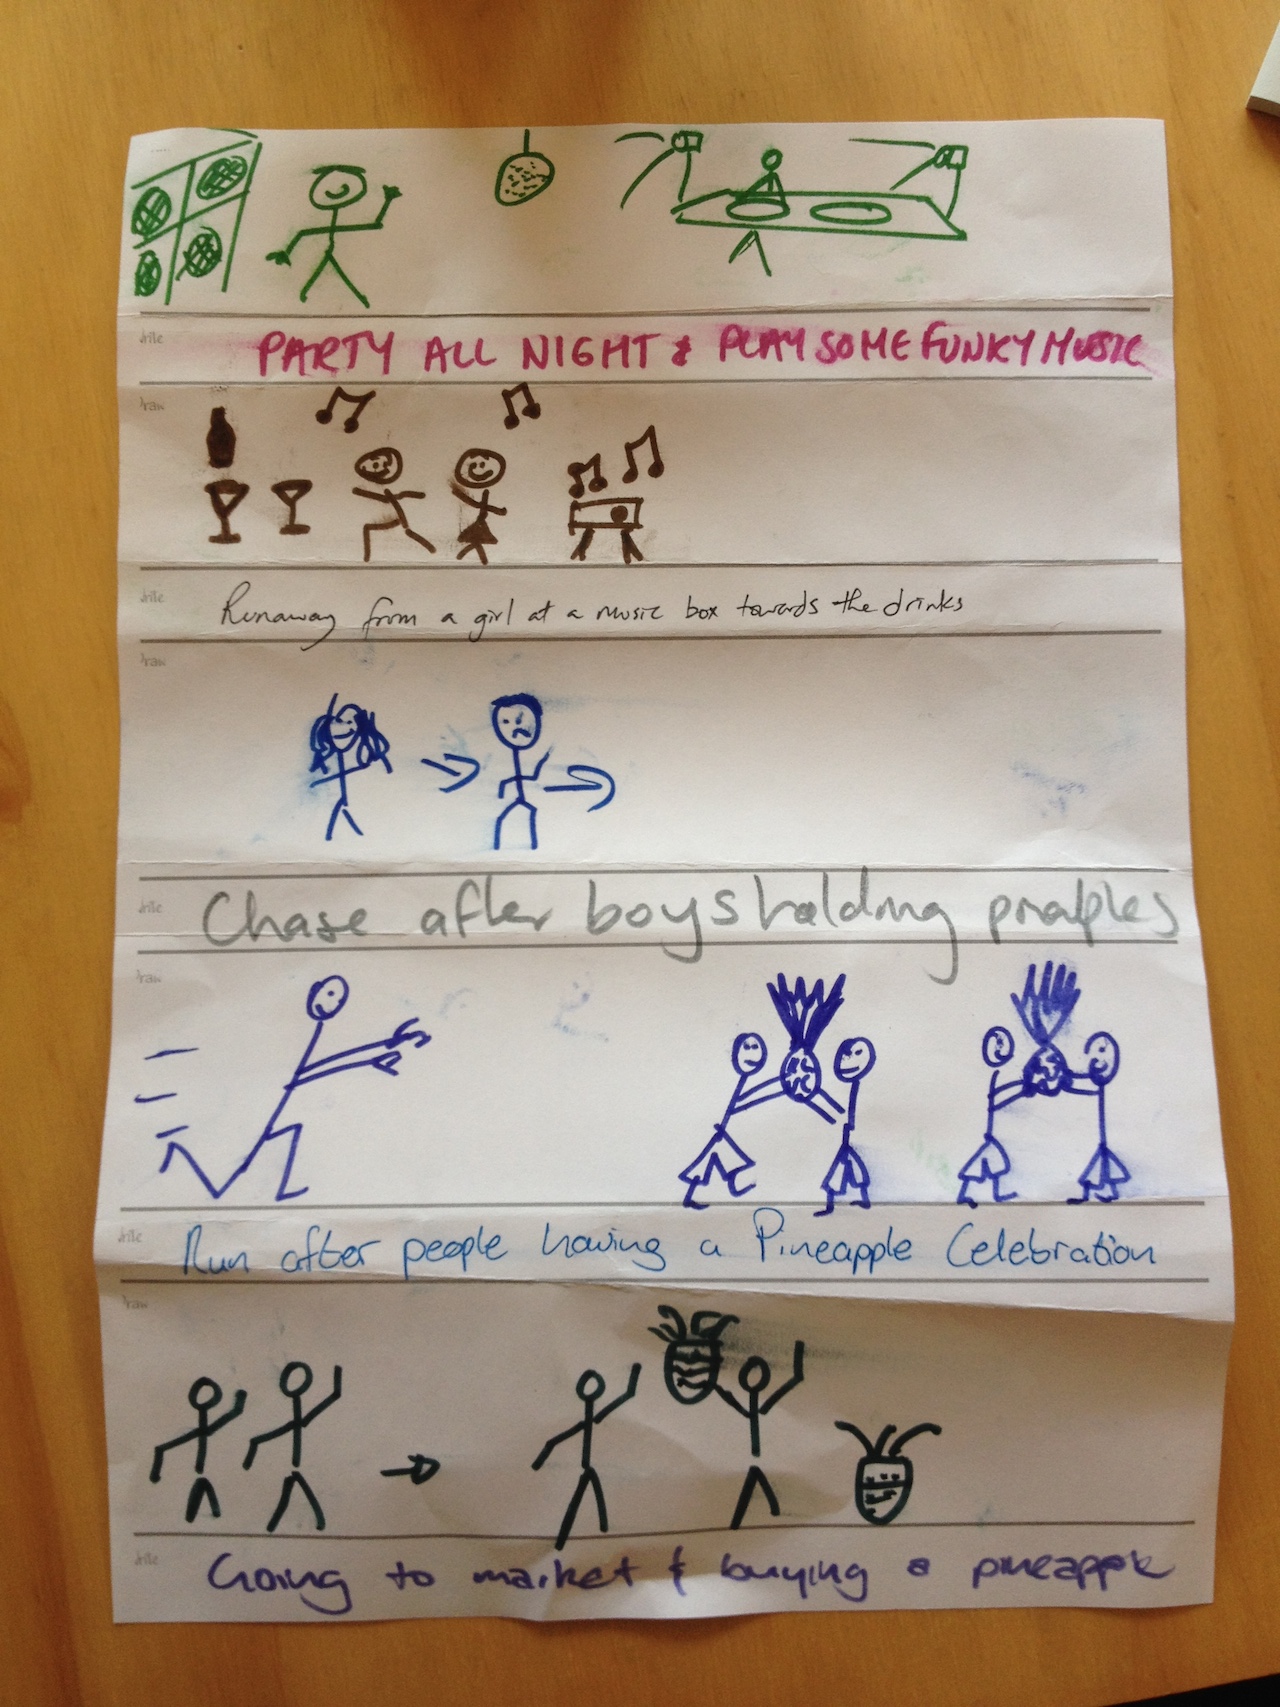 PARTY ALL NIGHT & PLAY SOME FUNKY MUSIC
draw
Runaway from a girl at a music box towards the drinks
draw
Chase after boys holding
draw
Run after people having a Pineapple Celebration
draw
Going to market & buying a pineapple